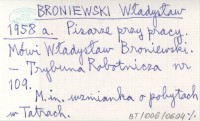 BRONIEWSKI Władysław
1958 a. Pisarze przy pracy.
Mówi Władysław Broniewski.
– Trybuna Robotnicza nr
109.
M.in. wzmianka o pobytach
w Tatrach.
BT/006/06.04